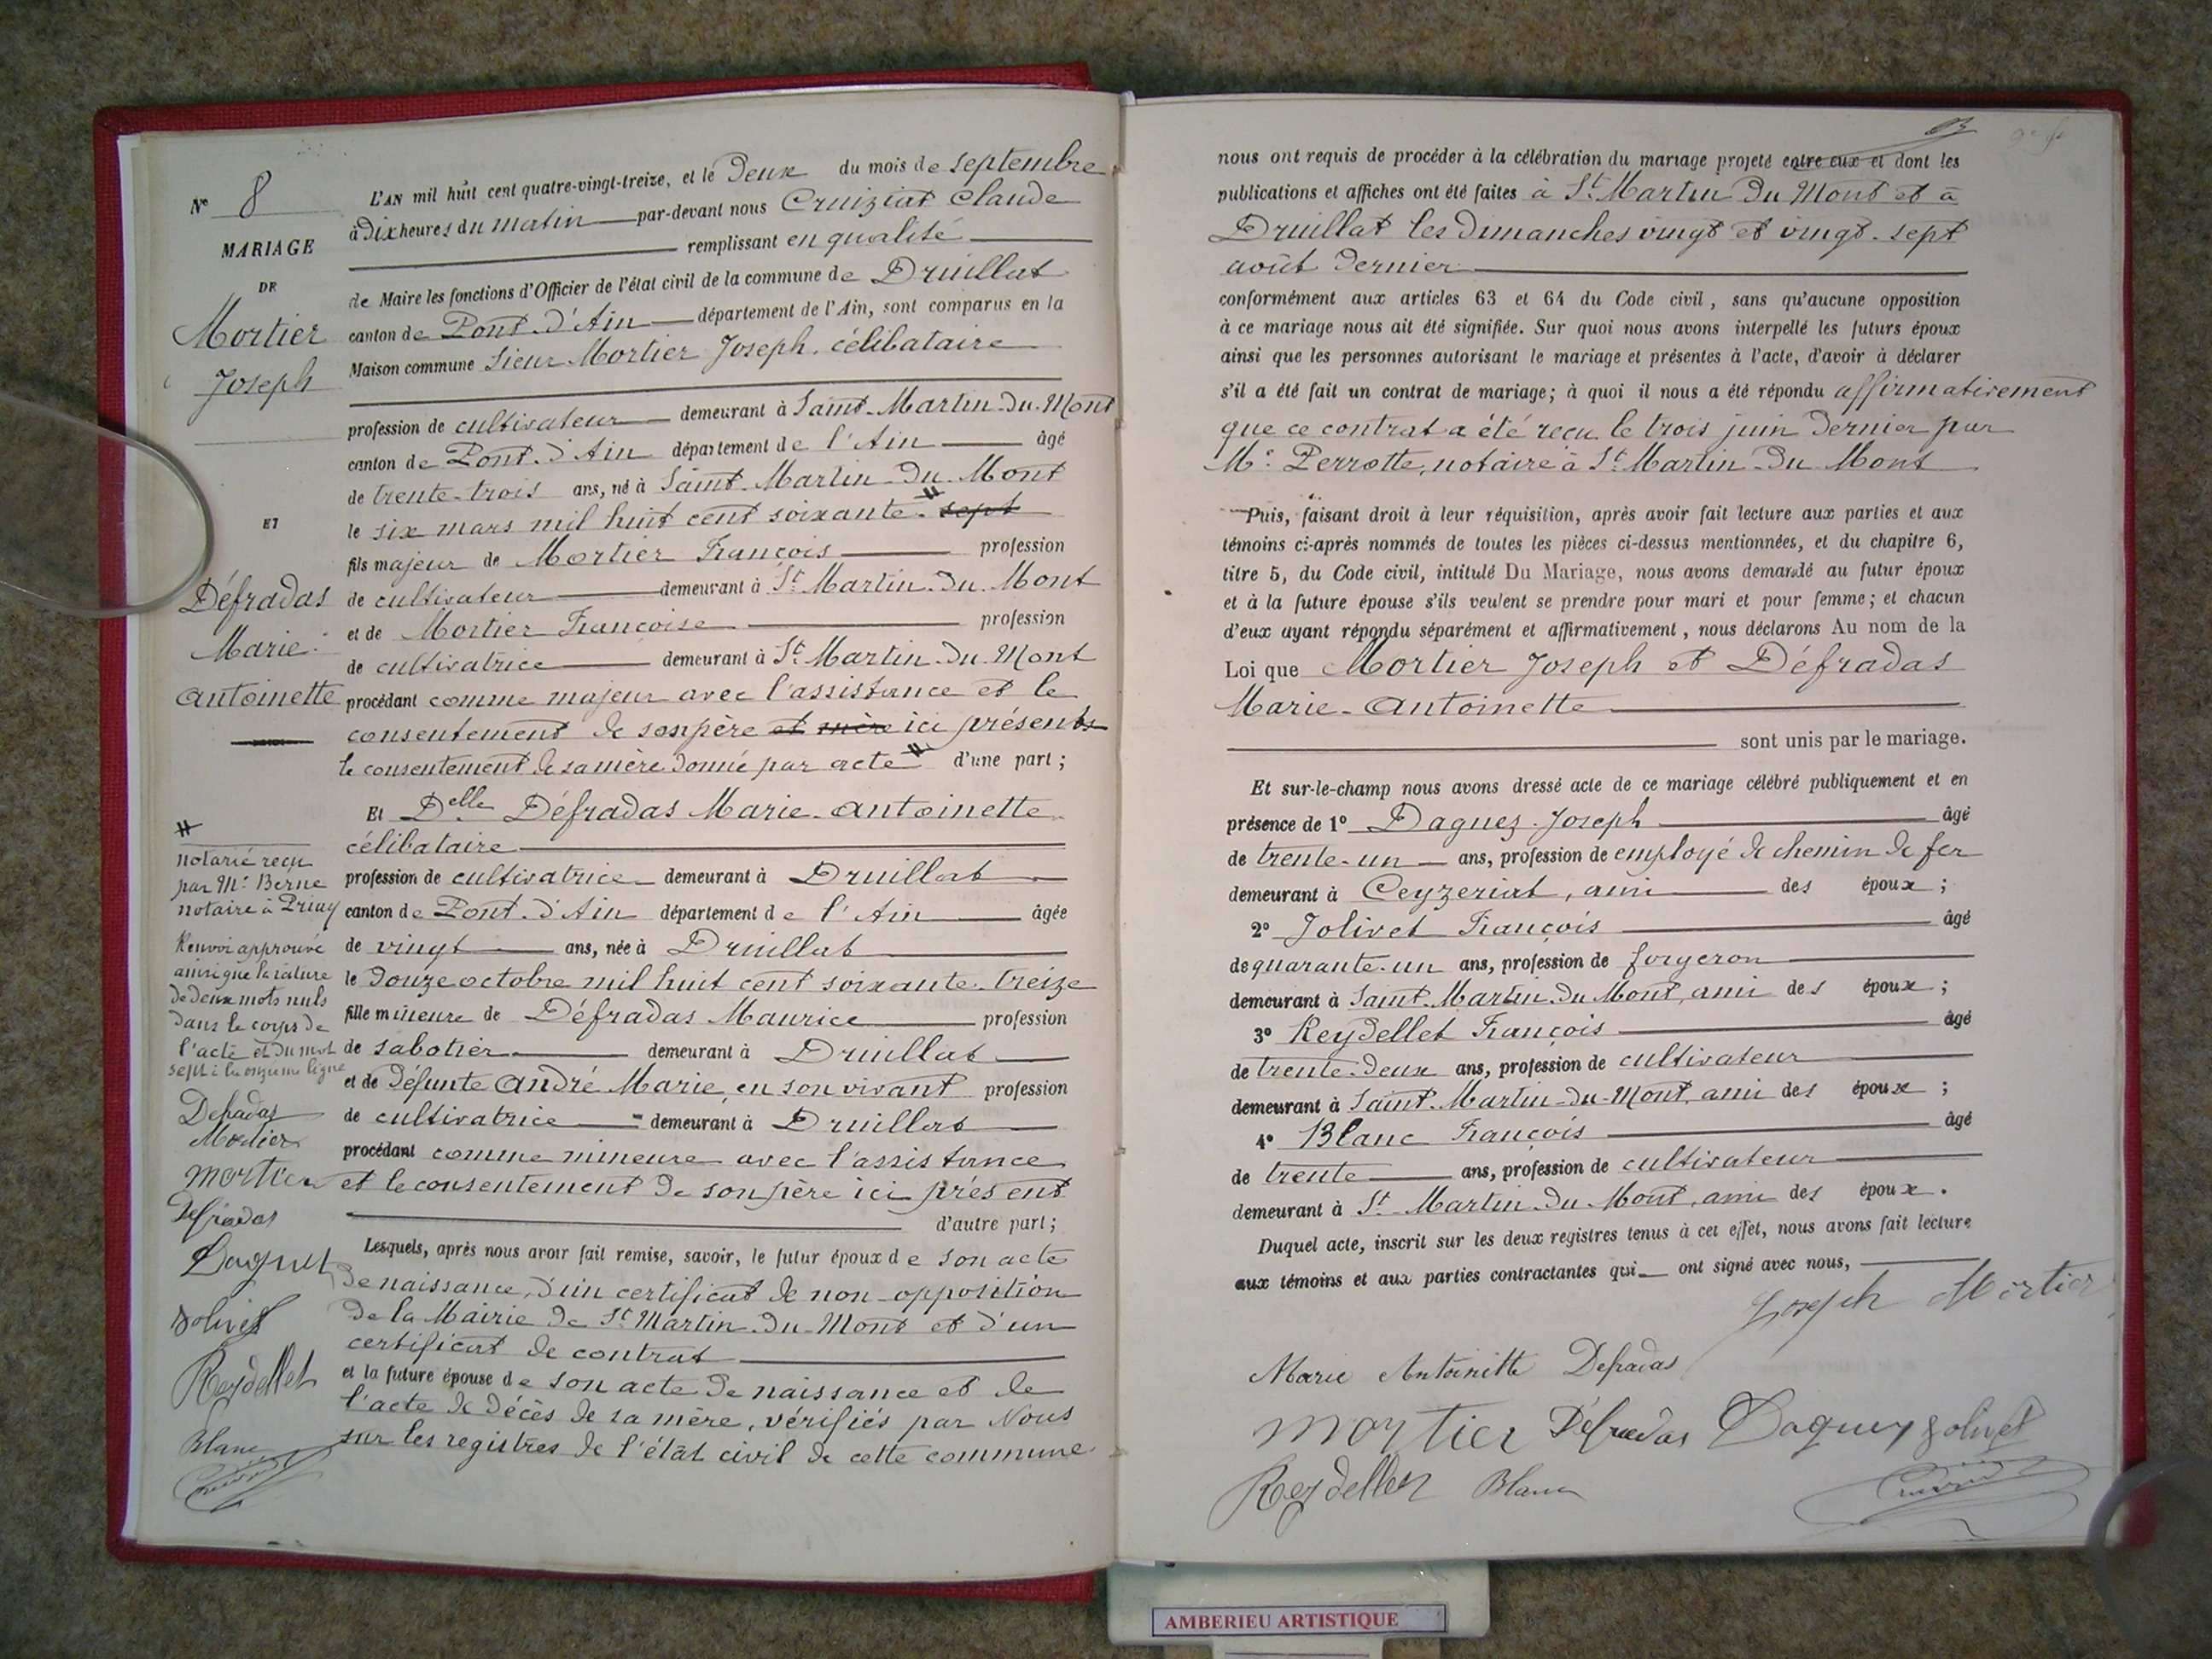 N° 8
MARIAGE
DE
Mortier
Joseph
ET
Défradas
Marie
Antoinette
#
notarié reçu
par Me Berne
notaire à Priay
Renvoi approuvé
ainsi que la rature
de deux mots nuls
dans le corps de
l'acte et du mot
sept à la onzième ligne
Defradas
Mortier
mortier
Defradas
Daguez
Jolivet
Reydellet
Blanc
L'AN mil huit cent quatre-vingt-treize, et le Deux du mois de septembre
à Dix heures du matin par-devant nous Cruiziat Claude
remplissant en qualité
de Maire les fonctions d'Officier de l'état civil de la commune de Druillat
canton de Pont-d'Ain département de l'Ain, sont comparus en la
Maison commune Sieur Mortier Joseph, célibataire
profession de cultivateur demeurant à Saint-Martin-du-Mont
canton de Pont-d'Ain département de l'Ain âgé
de trente-trois ans, né à Saint-Martin-du-Mont
le six mars mil huit cent soixante # sept
fils majeur de Mortier François profession
de cultivateur demeurant à St Martin-du-Mont
et de Mortier Françoise profession
de cultivatrice demeurant à St Martin-du-Mont
procédant comme majeur avec l'assistance et le
consentement de son père et mère ici présents
le consentement de sa mère donné par acte # d'une part;
Et Delle Défradas Marie-Antoinette
célibataire
profession de cultivatrice demeurant à Druillat
canton de Pont-d'Ain département de l'Ain âgée
de vingt ans, née à Druillat
le douze octobre mil huit cent soixante-treize
fille mineure de Défradas Maurice profession
de sabotier demeurant à Druillat
et de défunte André Marie, en son vivant profession
de cultivatrice demeurant à Druillat
procédant comme mineure avec l'assistance
et le consentement de son père ici présent
d'autre part;
Lesquels, après nous avoir fait remise, savoir, le futur époux de son acte
de naissance, d'un certificat de non-opposition
de la Mairie de St Martin-du-Mont et d'un
certificat de contrat
et la future épouse de son acte de naissance et de
l'acte de décès de sa mère, vérifiés par Nous
sur les registres de l'état civil de cette commune
nous ont requis de procéder à la célébration du mariage projeté entre eux et dont les
publications et affiches ont été faites à St Martin du Mont et à
Druillat les dimanches vingt et vingt-sept
août dernier
conformément aux articles 63 et 64 du Code civil, sans qu'aucune opposition
à ce mariage nous ait été signifiée. Sur quoi nous avons interpellé les futurs époux
ainsi que les personnes autorisant le mariage et présentes à l'acte, d'avoir à déclarer
s'il a été fait un contrat de mariage; à quoi il nous a été répondu affirmativement
que ce contrat a été reçu le trois juin dernier par
Me Perrotte, notaire à St Martin-du-Mont
Puis, faisant droit à leur réquisition, après avoir fait lecture aux parties et aux
témoins ci-après nommés de toutes les pièces ci-dessus mentionnées, et du chapitre 6,
titre 5, du Code civil, intitulé Du Mariage, nous avons demandé au futur époux
et à la future épouse s'ils veulent se prendre pour mari et pour femme; et chacun
d'eux ayant répondu séparément et affirmativement, nous déclarons Au nom de la
Loi que Mortier Joseph et Défradas
Marie-Antoinette
sont unis par le mariage.
Et sur-le-champ nous avons dressé acte de ce mariage célébré publiquement et en
présence de 1° Daguez Joseph âgé
de trente-un ans, profession de employé de chemin de fer
demeurant à Ceyzeriat, ami des époux;
2° Jolivet François âgé
de quarante-un ans, profession de forgeron
demeurant à Saint-Martin-du-Mont, ami des époux;
3° Reydellet François âgé
de trente-deux ans, profession de cultivateur
demeurant à Saint-Martin-du-Mont, ami des époux;
4° Blanc François âgé
de trente ans, profession de cultivateur
demeurant à St Martin-du-Mont, ami des époux.
Duquel acte, inscrit sur les deux registres tenus à cet effet, nous avons fait lecture
aux témoins et aux parties contractantes qui ont signé avec nous,
Joseph Mortier
Marie Antoinette Defradas
mortier Défradas Daguey Jolivet
Reydellet Blanc
AMBERIEU ARTISTIQUE